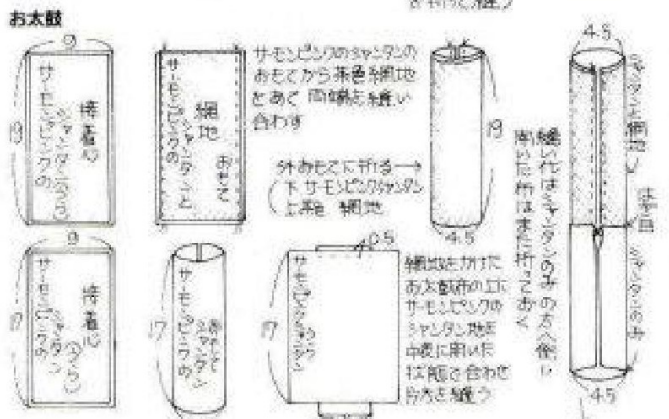 を折って縫う
お太鼓
9
19
接着心
サーモンピンクの
シャンタン
網地
おもて
サーモンピンクの
シャンタンと
サーモンピンクのシャンタンの
おもてから茶色網地
をあて 両端を縫い
合わす
外おもてに折る→
下 サーモンピンクシャンタン
上 茶色 網地
19
4.5
4.5
シャンタンと網地
縫い代はシャンタンのみの方へ倒し
開いた所はまた折っておく
シャンタンのみ
4.5
9
17
接着心
サーモンピンクの
シャンタン
17
サーモンピンクの
シャンタン
0.5
17
サーモンピンク
シャンタン
網地をかけた
お太鼓布の上に
サーモンピンクの
シャンタン地を
中表に開いた
状態で合わせ
片方を縫う